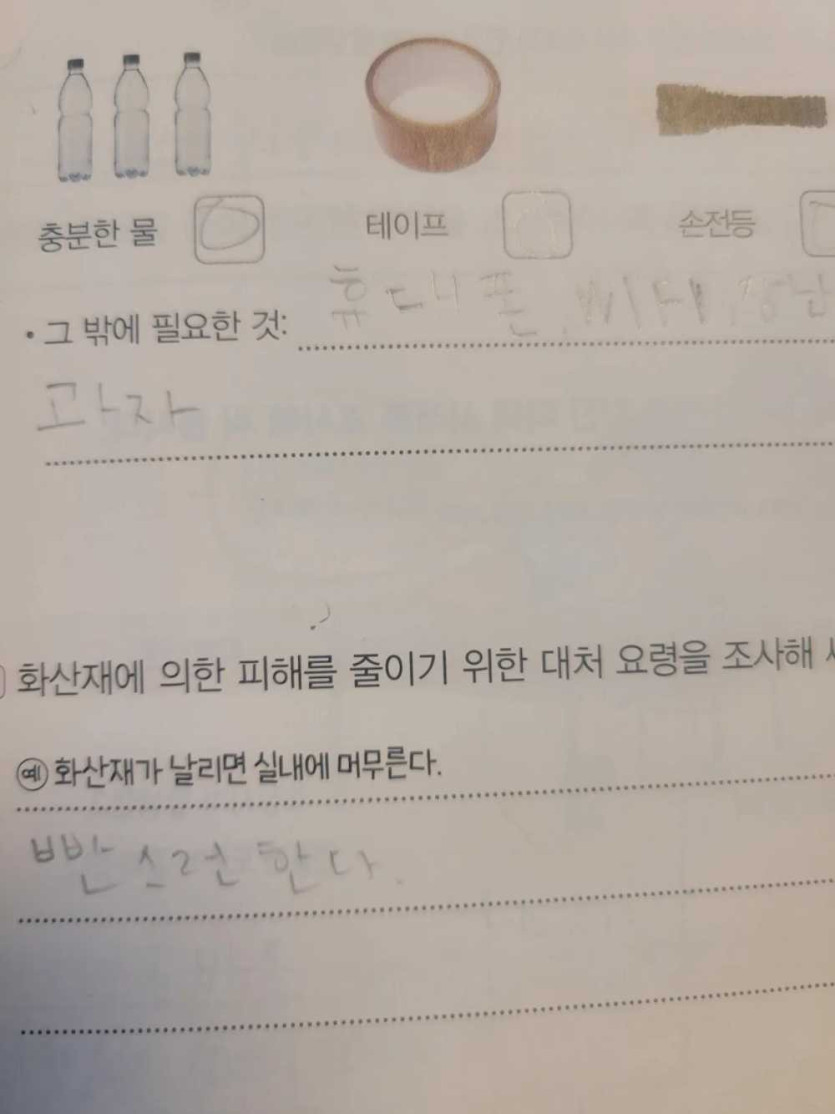 충분한 물 테이프 손전등
• 그 밖에 필요한 것: 휴대폰,
과자
화산재에 의한 피해를 줄이기 위한 대처 요령을 조사해
예 화산재가 날리면 실내에 머무른다.
빤스런 한다.